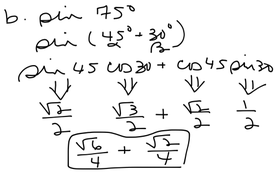 b. sin 75°
sin (45° + 30°)
2 2
sin 45 cos 30 + cos 45 sin 30
⇓ ⇓ ⇓ ⇓
√2/2 √3/2 + √2/2 1/2
√6/4 + √2/4